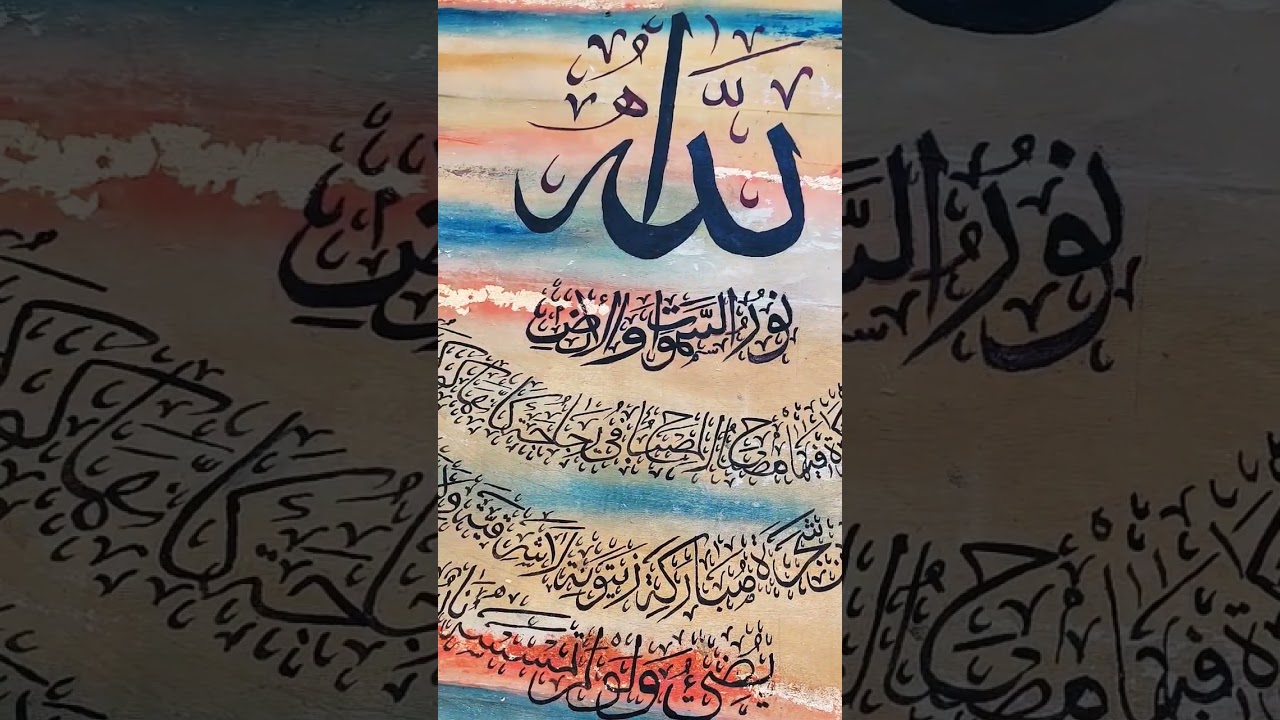 ٱللَّهُ
نُورُ السَّمٰوَاتِ وَالْأَرْضِ
ةٍ فِيهَا مِصْبَاحٌ الْمِصْبَاحُ فِي زُجَاجَةٍ
شَجَرَةٍ مُّبَارَكَةٍ زَيْتُونَةٍ لَّا شَرْقِيَّةٍ
يُضِيءُ وَلَوْ لَمْ تَمْسَسْهُ نَارٌ